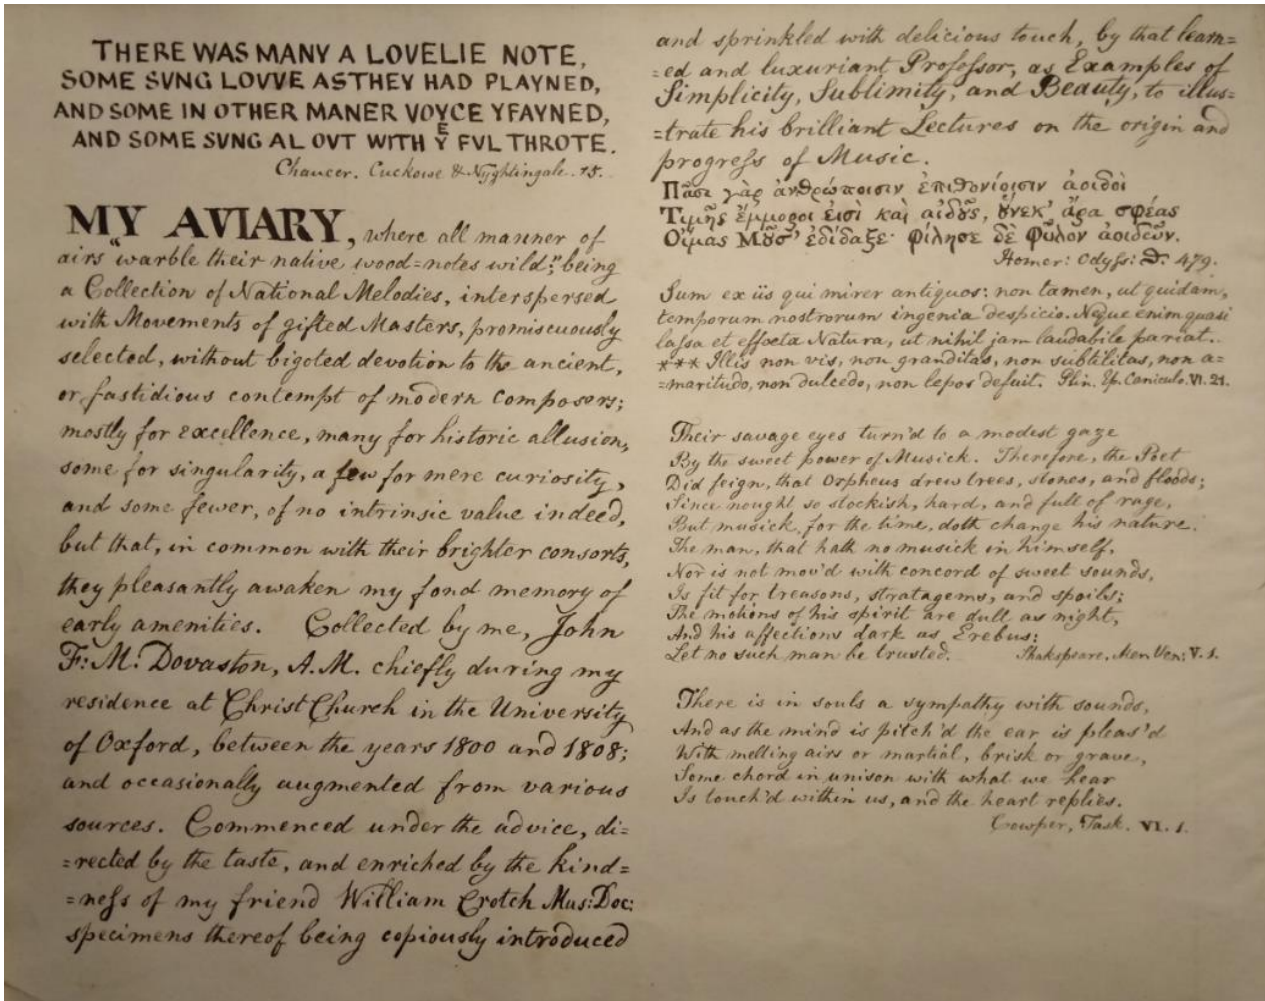 THERE WAS MANY A LOVELIE NOTE,
SOME SVNG LOVVE AS THEY HAD PLAYNED,
AND SOME IN OTHER MANER VOYCE YFAYNED,
AND SOME SVNG AL OVT WITH Yᴱ FVL THROTE.
Chaucer. Cuckowe & Nyghtingale. 15.
MY AVIARY, where all manner of
airs "warble their native wood=notes wild;" being
a Collection of National Melodies, interspersed
with Movements of gifted Masters, promiscuously
selected, without bigoted devotion to the ancient,
or fastidious contempt of modern composers;
mostly for excellence, many for historic allusion,
some for singularity, a few for mere curiosity,
and some fewer, of no intrinsic value indeed,
but that, in common with their brighter consorts,
they pleasantly awaken my fond memory of
early amenities. Collected by me, John
F: M: Dovaston, A.M. chiefly during my
residence at Christ Church in the University
of Oxford, between the years 1800 and 1808;
and occasionally augmented from various
sources. Commenced under the advice, di=
=rected by the taste, and enriched by the kind=
=neſs of my friend William Crotch Mus: Doc:
specimens thereof being copiously introduced
and sprinkled with delicious touch, by that learn=
=ed and luxuriant Profeſsor, as Examples of
Simplicity, Sublimity, and Beauty, to illus=
=trate his brilliant Lectures on the origin and
progreſs of Music.
Πᾶσι γὰρ ἀνθρώποισιν ἐπιχθονίοισιν ἀοιδοὶ
Τιμῆς ἔμμοροι ἐισὶ καὶ αἰδȣ̃ς, ȣ̔́νεκ' ἄρα σφέας
Οἴμας Μȣ̃σ' ἐδίδαξε· φίλησε δὲ φῦλον ἀοιδῶν.
Homer: Odyſs: Θ. 479.
Sum ex iis qui mirer antiquos: non tamen, ut quidam,
temporum nostrorum ingenia despicio. Neque enim quasi
laſsa et effœta Natura, ut nihil jam laudabile pariat.
*** Illis non vis, non granditas, non subtilitas, non a=
=maritudo, non dulcedo, non lepos defuit. Plin. Ep. Caniculo. VI. 21.
Their savage eyes turn'd to a modest gaze
By the sweet power of Musick. Therefore, the Poet
Did feign, that Orpheus drew trees, stones, and floods;
Since nought so stockish, hard, and full of rage,
But musick, for the time, doth change his nature.
The man, that hath no musick in himself,
Nor is not mov'd with concord of sweet sounds,
Is fit for treasons, stratagems, and spoils;
The motions of his spirit are dull as night,
And his affections dark as Erebus:
Let no such man be trusted. Shakspeare, Mer: Ven: V. 1.
There is in souls a sympathy with sounds,
And as the mind is pitch'd the ear is pleas'd
With melting airs or martial, brisk or grave,
Some chord in unison with what we hear
Is touch'd within us, and the heart replies.
Cowper, Task. VI. 1.